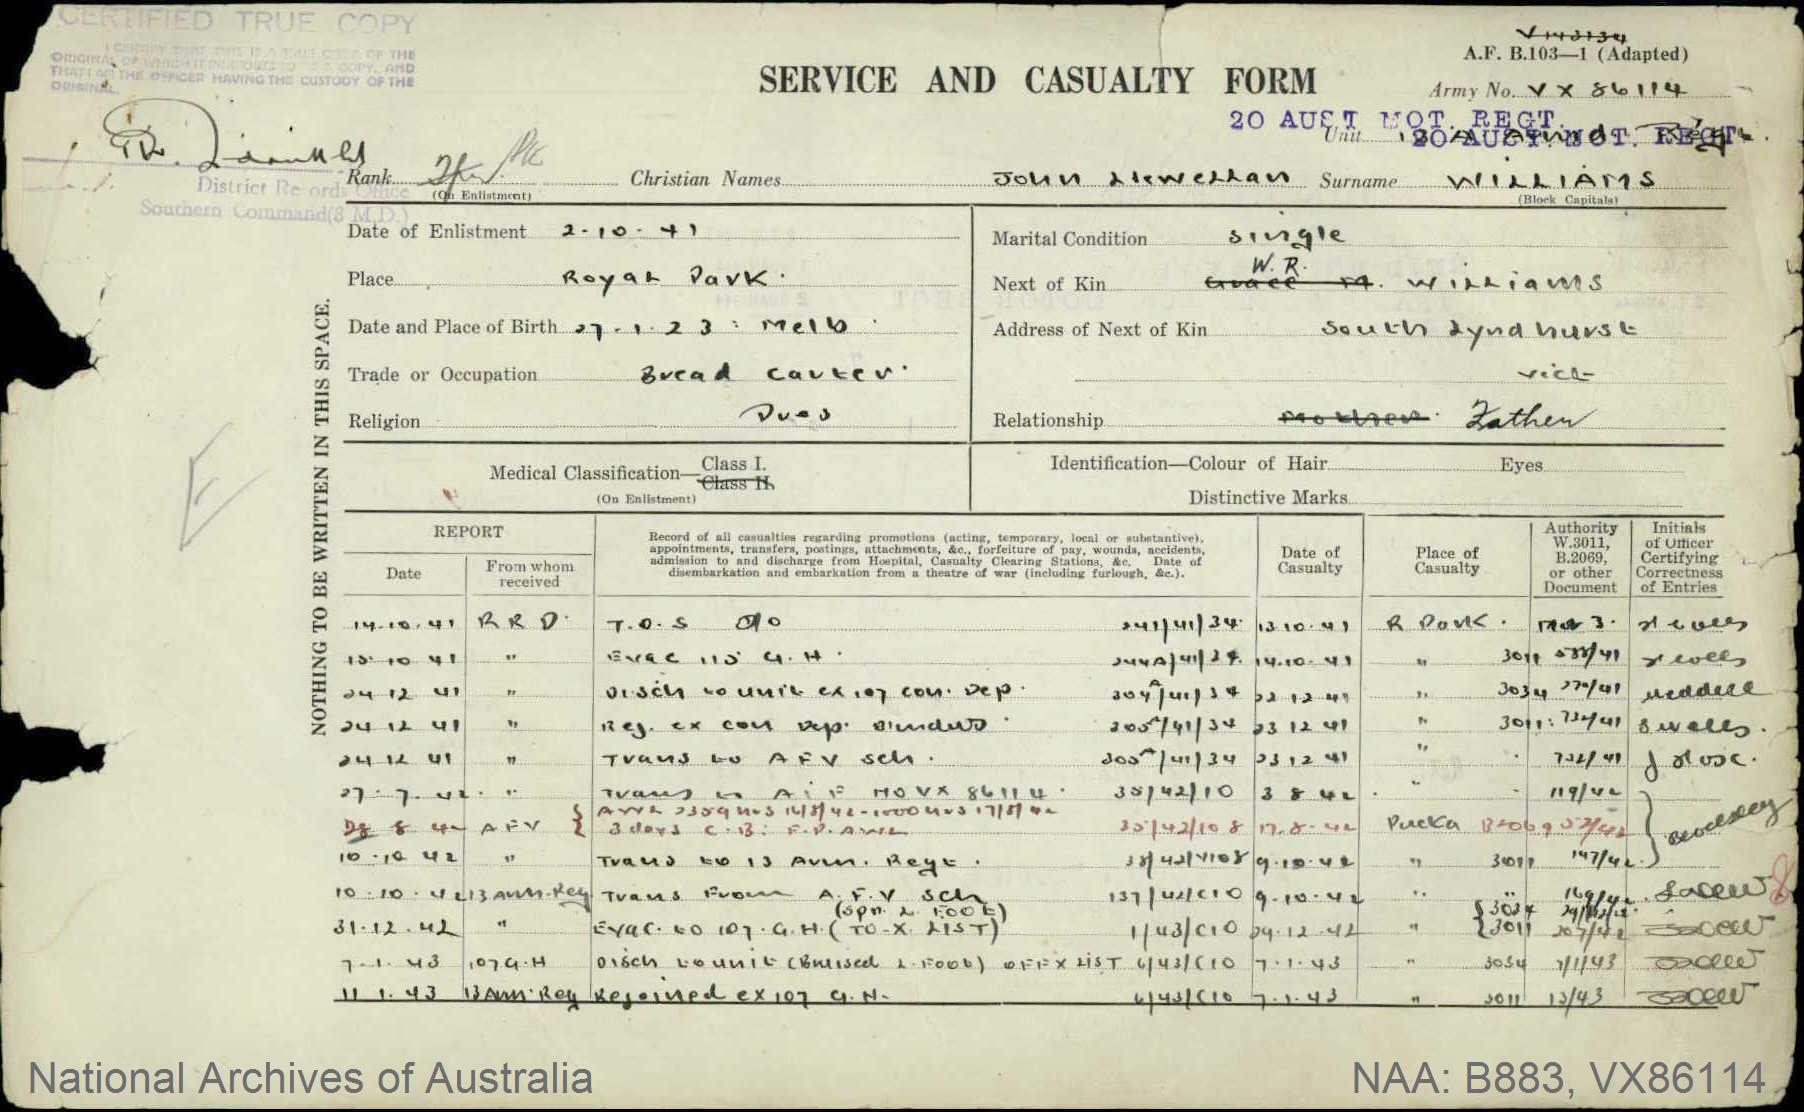 CERTIFIED TRUE COPY
I CERTIFY THAT THIS IS A TRUE COPY OF THE
ORIGINAL OF WHICH IT PURPORTS TO COPY, AND
THAT I AM THE OFFICER HAVING THE CUSTODY OF THE
ORIGINAL.
District Records Office
Southern Command (3 M.D.)
V143134
A.F. B.103—1 (Adapted)
SERVICE AND CASUALTY FORM
Army No. VX 86114
20 AUST MOT. REGT.
Unit 20 AUST. MOT. REGT.
Rank Tpr. Christian Names John Llewellan Surname WILLIAMS
(On Enlistment) (Block Capitals)
Date of Enlistment 2.10.41 Marital Condition single
Place Royal Park. Next of Kin Grace M. W.R. Williams
Date and Place of Birth 27.1.23: Melb. Address of Next of Kin South Lyndhurst
Trade or Occupation Bread Carter. Vict
Religion Pres Relationship Mother. Father
Medical Classification—Class I. Class II. Identification—Colour of Hair Eyes
(On Enlistment) Distinctive Marks
NOTHING TO BE WRITTEN IN THIS SPACE.
REPORT
Date From whom received
Record of all casualties regarding promotions (acting, temporary, local or substantive), appointments, transfers, postings, attachments, &c., forfeiture of pay, wounds, accidents, admission to and discharge from Hospital, Casualty Clearing Stations, &c. Date of disembarkation and embarkation from a theatre of war (including furlough, &c.).
Date of Casualty
Place of Casualty
Authority W.3011, B.2069, or other Document
Initials of Officer Certifying Correctness of Entries
14.10.41 R R D. T.O.S 241/41/34. 13.10.41 R Park.
15.10 41 " Evac 115 G.H. 244A/41/34. 14.10.41 " 3011 588/41
24 12 41 " Disch to unit ex 107 Con. Dep. 304A/41/34 22 12 41 " 3034 /41
24 12 41 " Rej. ex Con Dep. 305A/41/34 23 12 41 " 3011: 732/41
24 12 41 " Trans to A F V Sch. 305A/41/34 23 12 41 " 732/41
27.7.42. " Trans to A.I.F NO VX 86114. 35/42/10 3 8 42. " 119/42
AWL 2359 hrs 16/8/42 - 1500 hrs 17/8/42
8 42 A F V 3 days C.B: F.P. AWL 35/42/108 17.8.42 Pucka B2069 52/42
10.10 42 " Trans to 13 Arm. Regt. 9.10.42 " 3011 147/42.
10.10.42 13 Arm. Reg Trans From A.F.V Sch 137/42/C10 9.10.42 " " 169/42.
(Spn. L. FOOT) 3034
31.12.42 " Evac. to 107.G.H. (TO-X. LIST) 1/43/C10 29.12.42 " 3011 207/42
7.1.43 107 G.H Disch to unit (Bruised L. Foot) OFF X LIST 6/43/C10 7.1.43 " 3034 7/1/43
11 1.43 13 Arm. Reg Rejoined ex 107 G.H. 6/43/C10 7.1.43 " 3011 13/43
National Archives of Australia
NAA: B883, VX86114